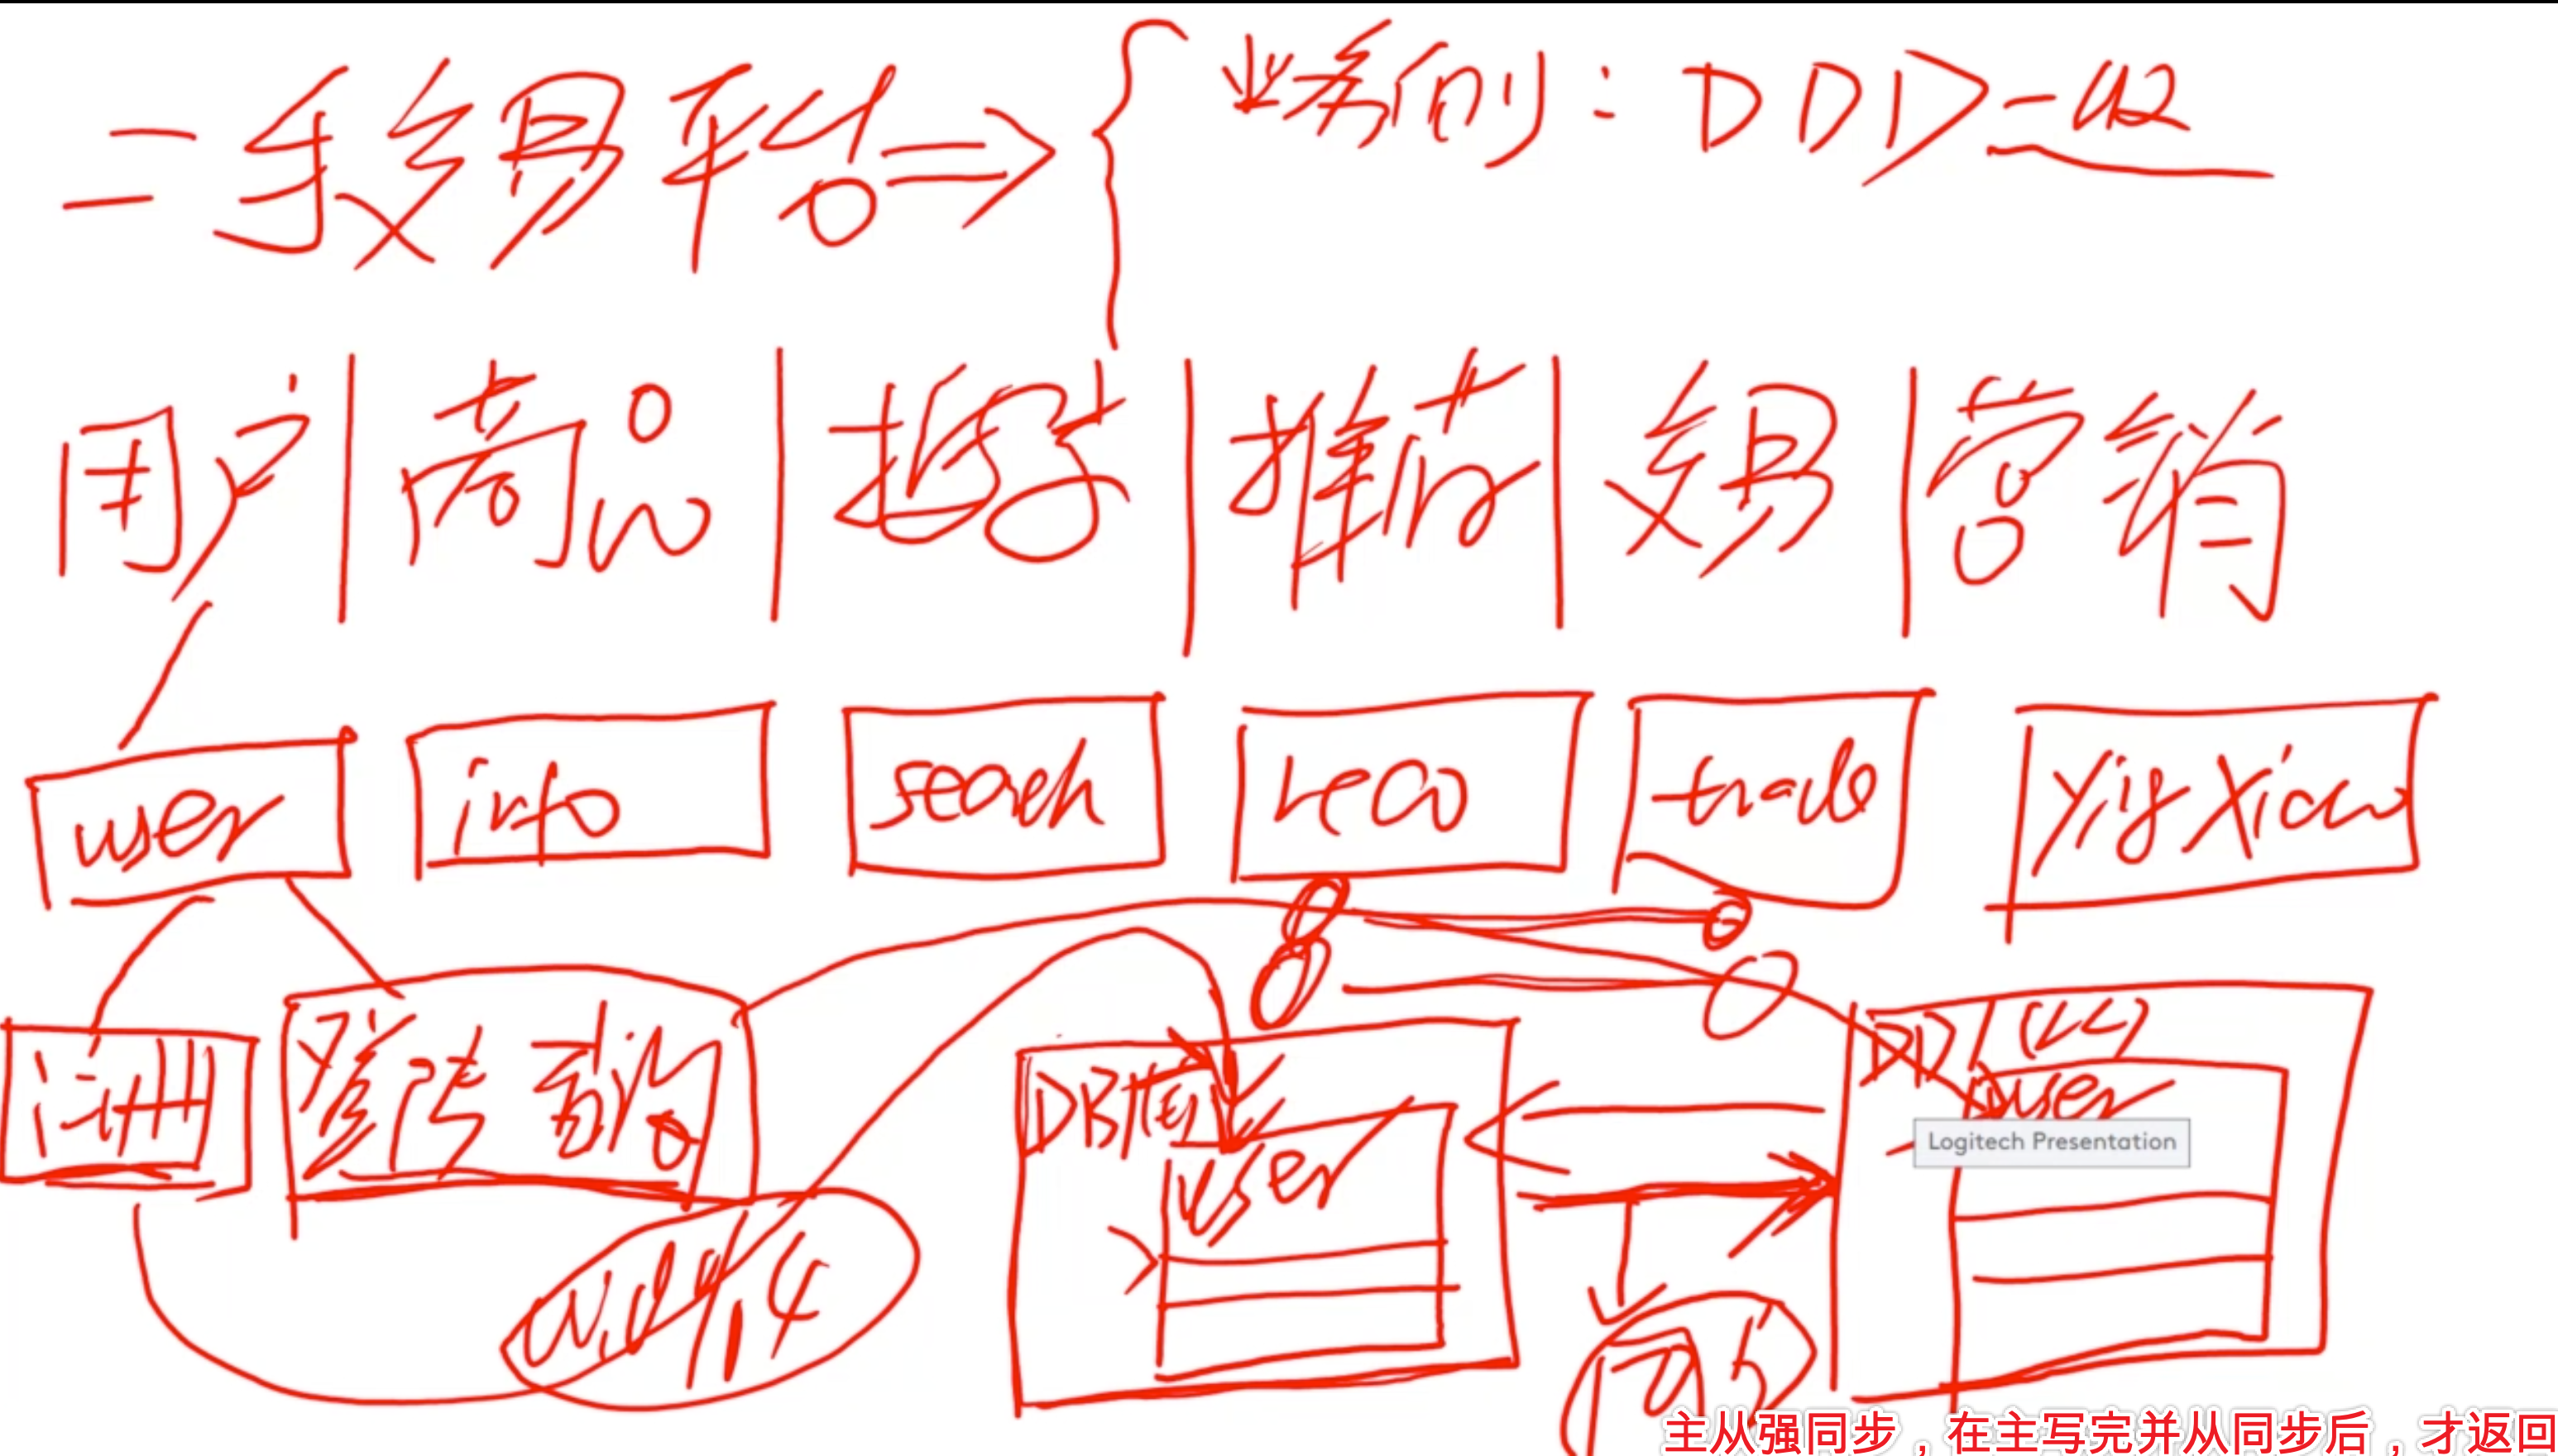 二手交易平台⇒{业务例:DDD
用户|商品|搜索|推荐|交易|营销
user info search reco trade YigXiao
注册 登陆查询 DB(主) DB(从)
user
user
Logitech Presentation
uid
同步
主从强同步，在主写完并从同步后，才返回